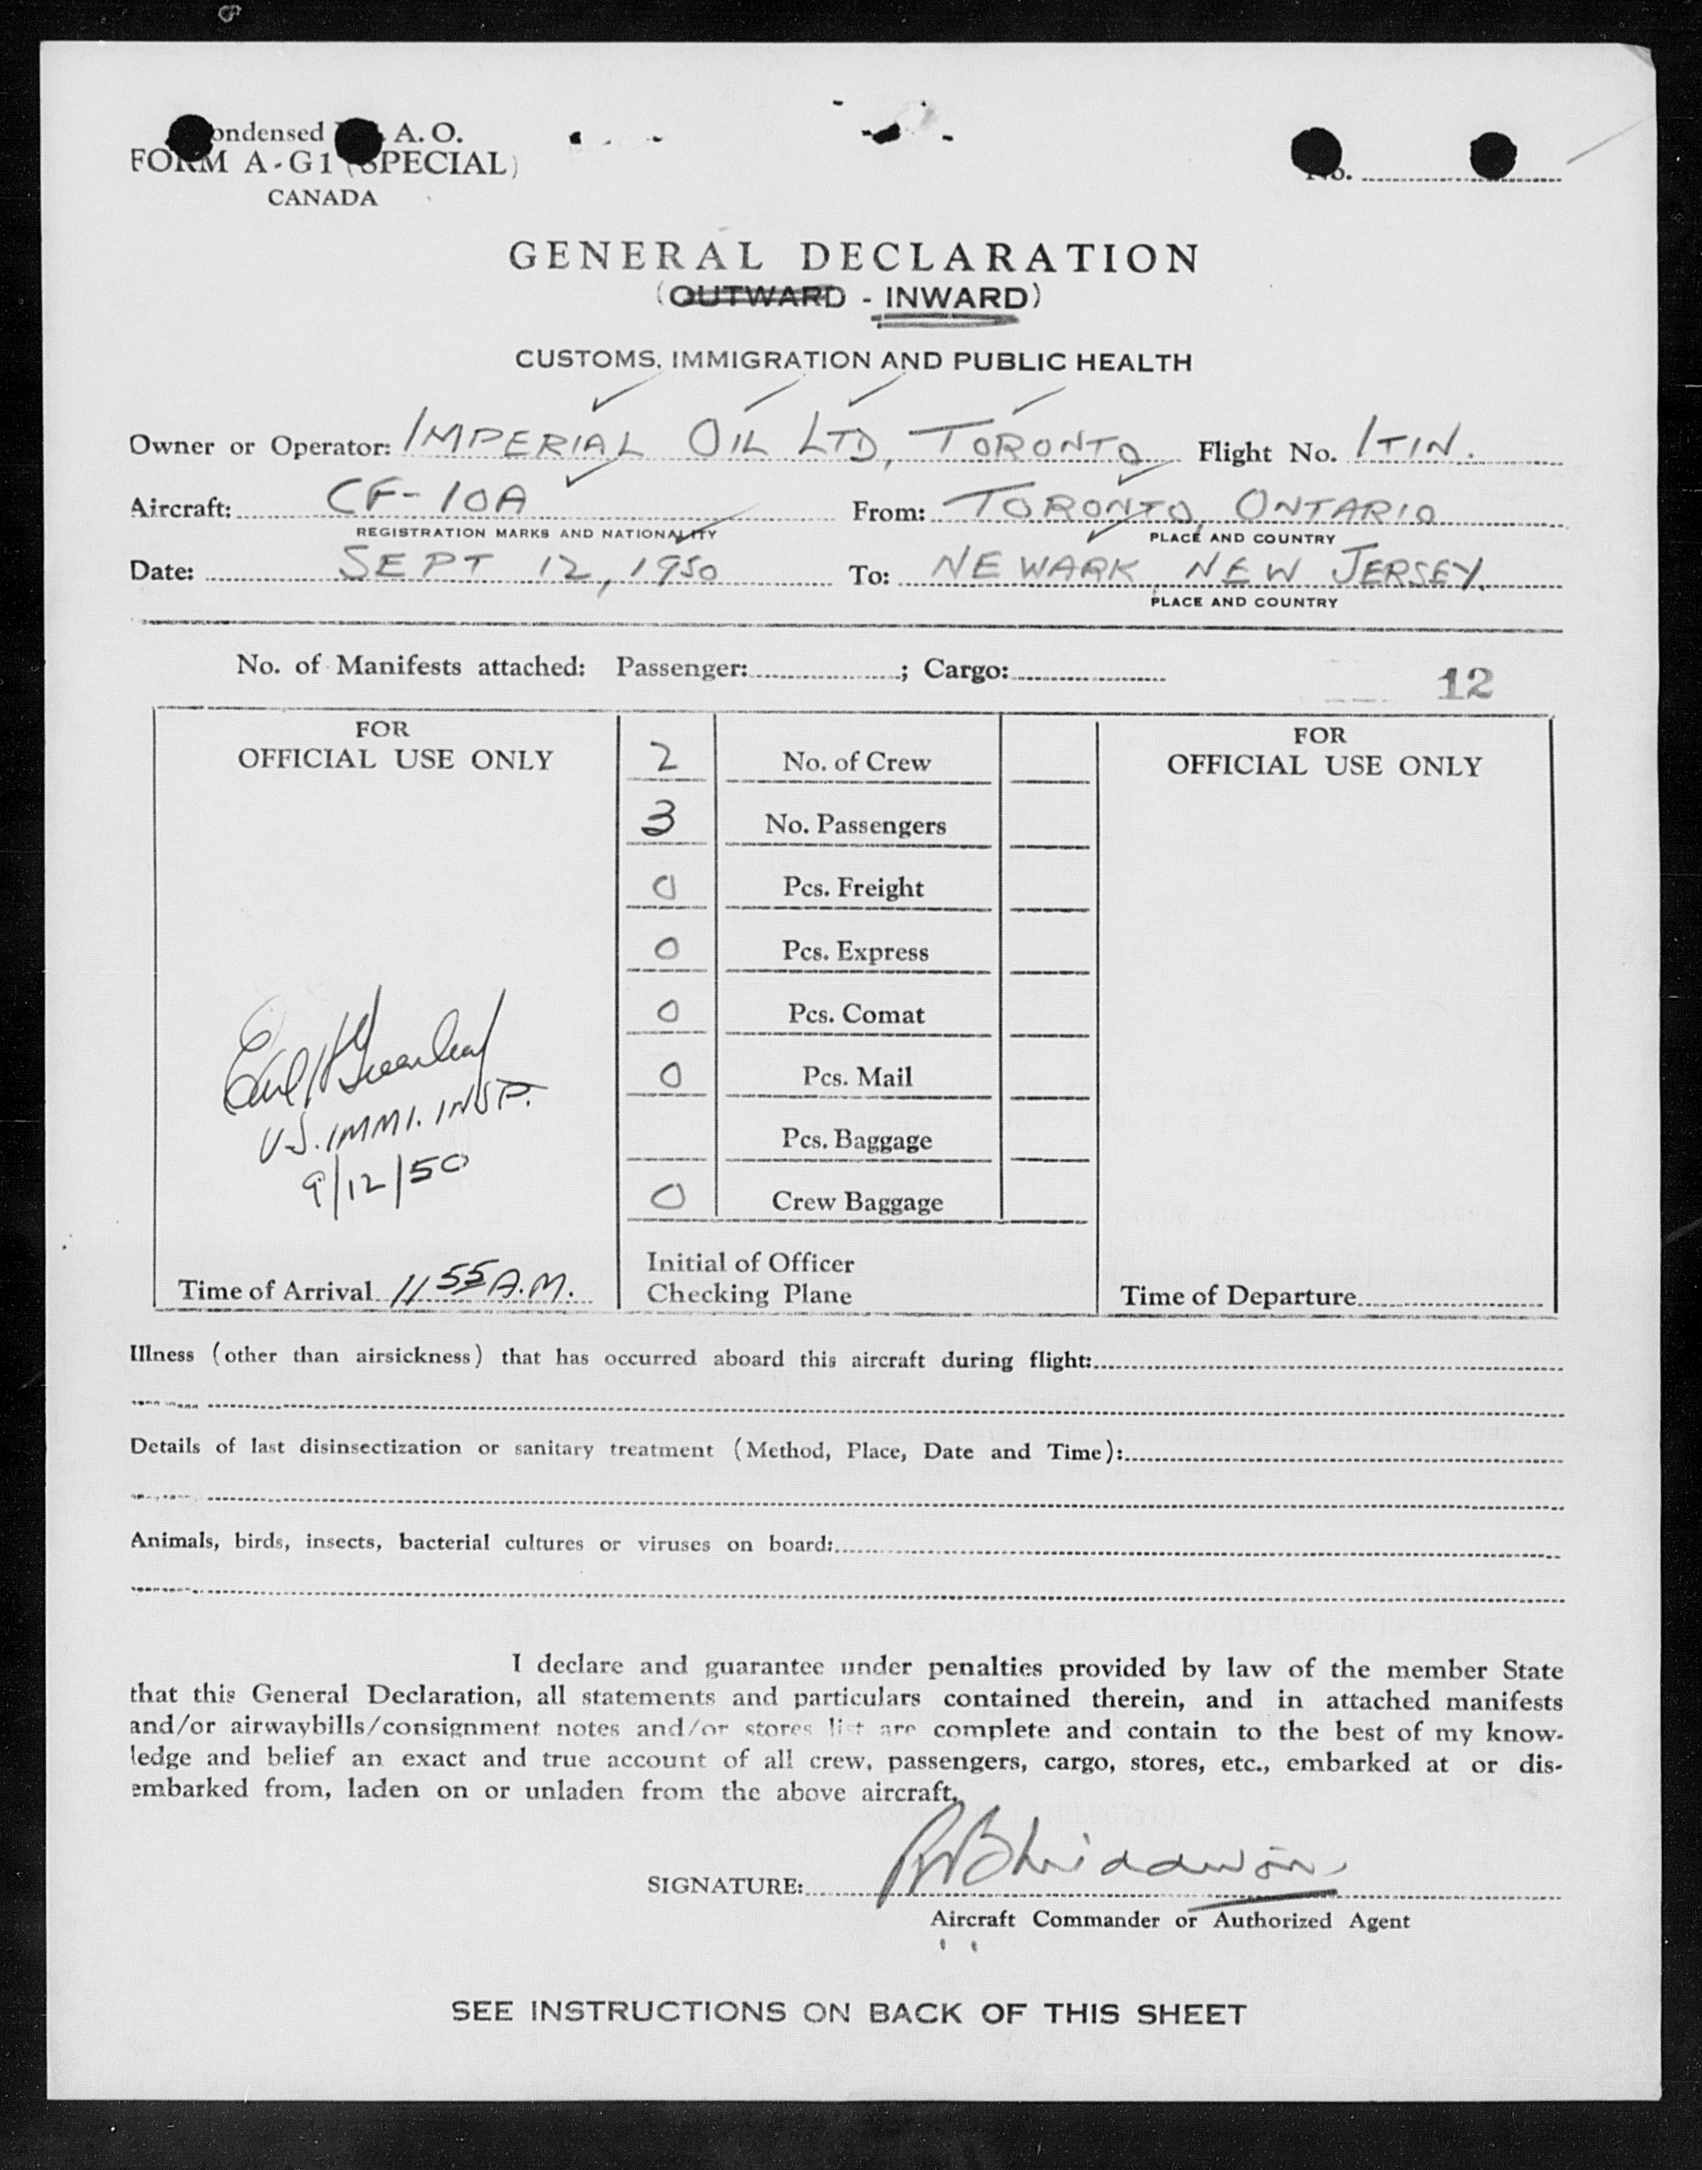 Condensed I.C.A.O.
FORM A-G1 (SPECIAL)
CANADA
No.
GENERAL DECLARATION
(OUTWARD - INWARD)
CUSTOMS, IMMIGRATION AND PUBLIC HEALTH
Owner or Operator: IMPERIAL OIL LTD, TORONTO Flight No. ITIN.
Aircraft: CF-IOA From: TORONTO, ONTARIO
REGISTRATION MARKS AND NATIONALITY PLACE AND COUNTRY
Date: SEPT 12, 1950 To: NEWARK, NEW JERSEY.
PLACE AND COUNTRY
No. of Manifests attached: Passenger: ; Cargo:
12
FOR
OFFICIAL USE ONLY
2 No. of Crew
3 No. Passengers
0 Pcs. Freight
0 Pcs. Express
0 Pcs. Comat
0 Pcs. Mail
Pcs. Baggage
0 Crew Baggage
FOR
OFFICIAL USE ONLY
Earl H Greenleaf
U.S. IMMI. INSP.
9/12/50
Time of Arrival 11 55 A.M.
Initial of Officer
Checking Plane
Time of Departure
Illness (other than airsickness) that has occurred aboard this aircraft during flight:
Details of last disinsectization or sanitary treatment (Method, Place, Date and Time):
Animals, birds, insects, bacterial cultures or viruses on board:
I declare and guarantee under penalties provided by law of the member State
that this General Declaration, all statements and particulars contained therein, and in attached manifests
and/or airwaybills/consignment notes and/or stores list are complete and contain to the best of my know-
ledge and belief an exact and true account of all crew, passengers, cargo, stores, etc., embarked at or dis-
embarked from, laden on or unladen from the above aircraft.
SIGNATURE:
Aircraft Commander or Authorized Agent
SEE INSTRUCTIONS ON BACK OF THIS SHEET